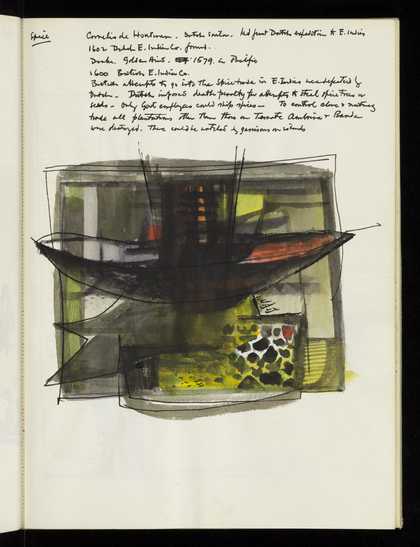 Spice
Cornelis de Houtman. Dutch Sailor. Led first Dutch expedition to E. Indies
1602 Dutch E. India Co. formed.
Drake Golden Hind. 1579 in Pacific
1600 British E. India Co.
British attempts to go into the Spice trade in E. Indies was defeated by
Dutch. Dutch imposed death penalty for attempts to steal Spice Trees or
seeds - only Govt employees could ship spices - To control clove & nutmeg
trade all plantations other than those on Ternate Amboina & Banda
were destroyed. These could be watched by garrisons on islands